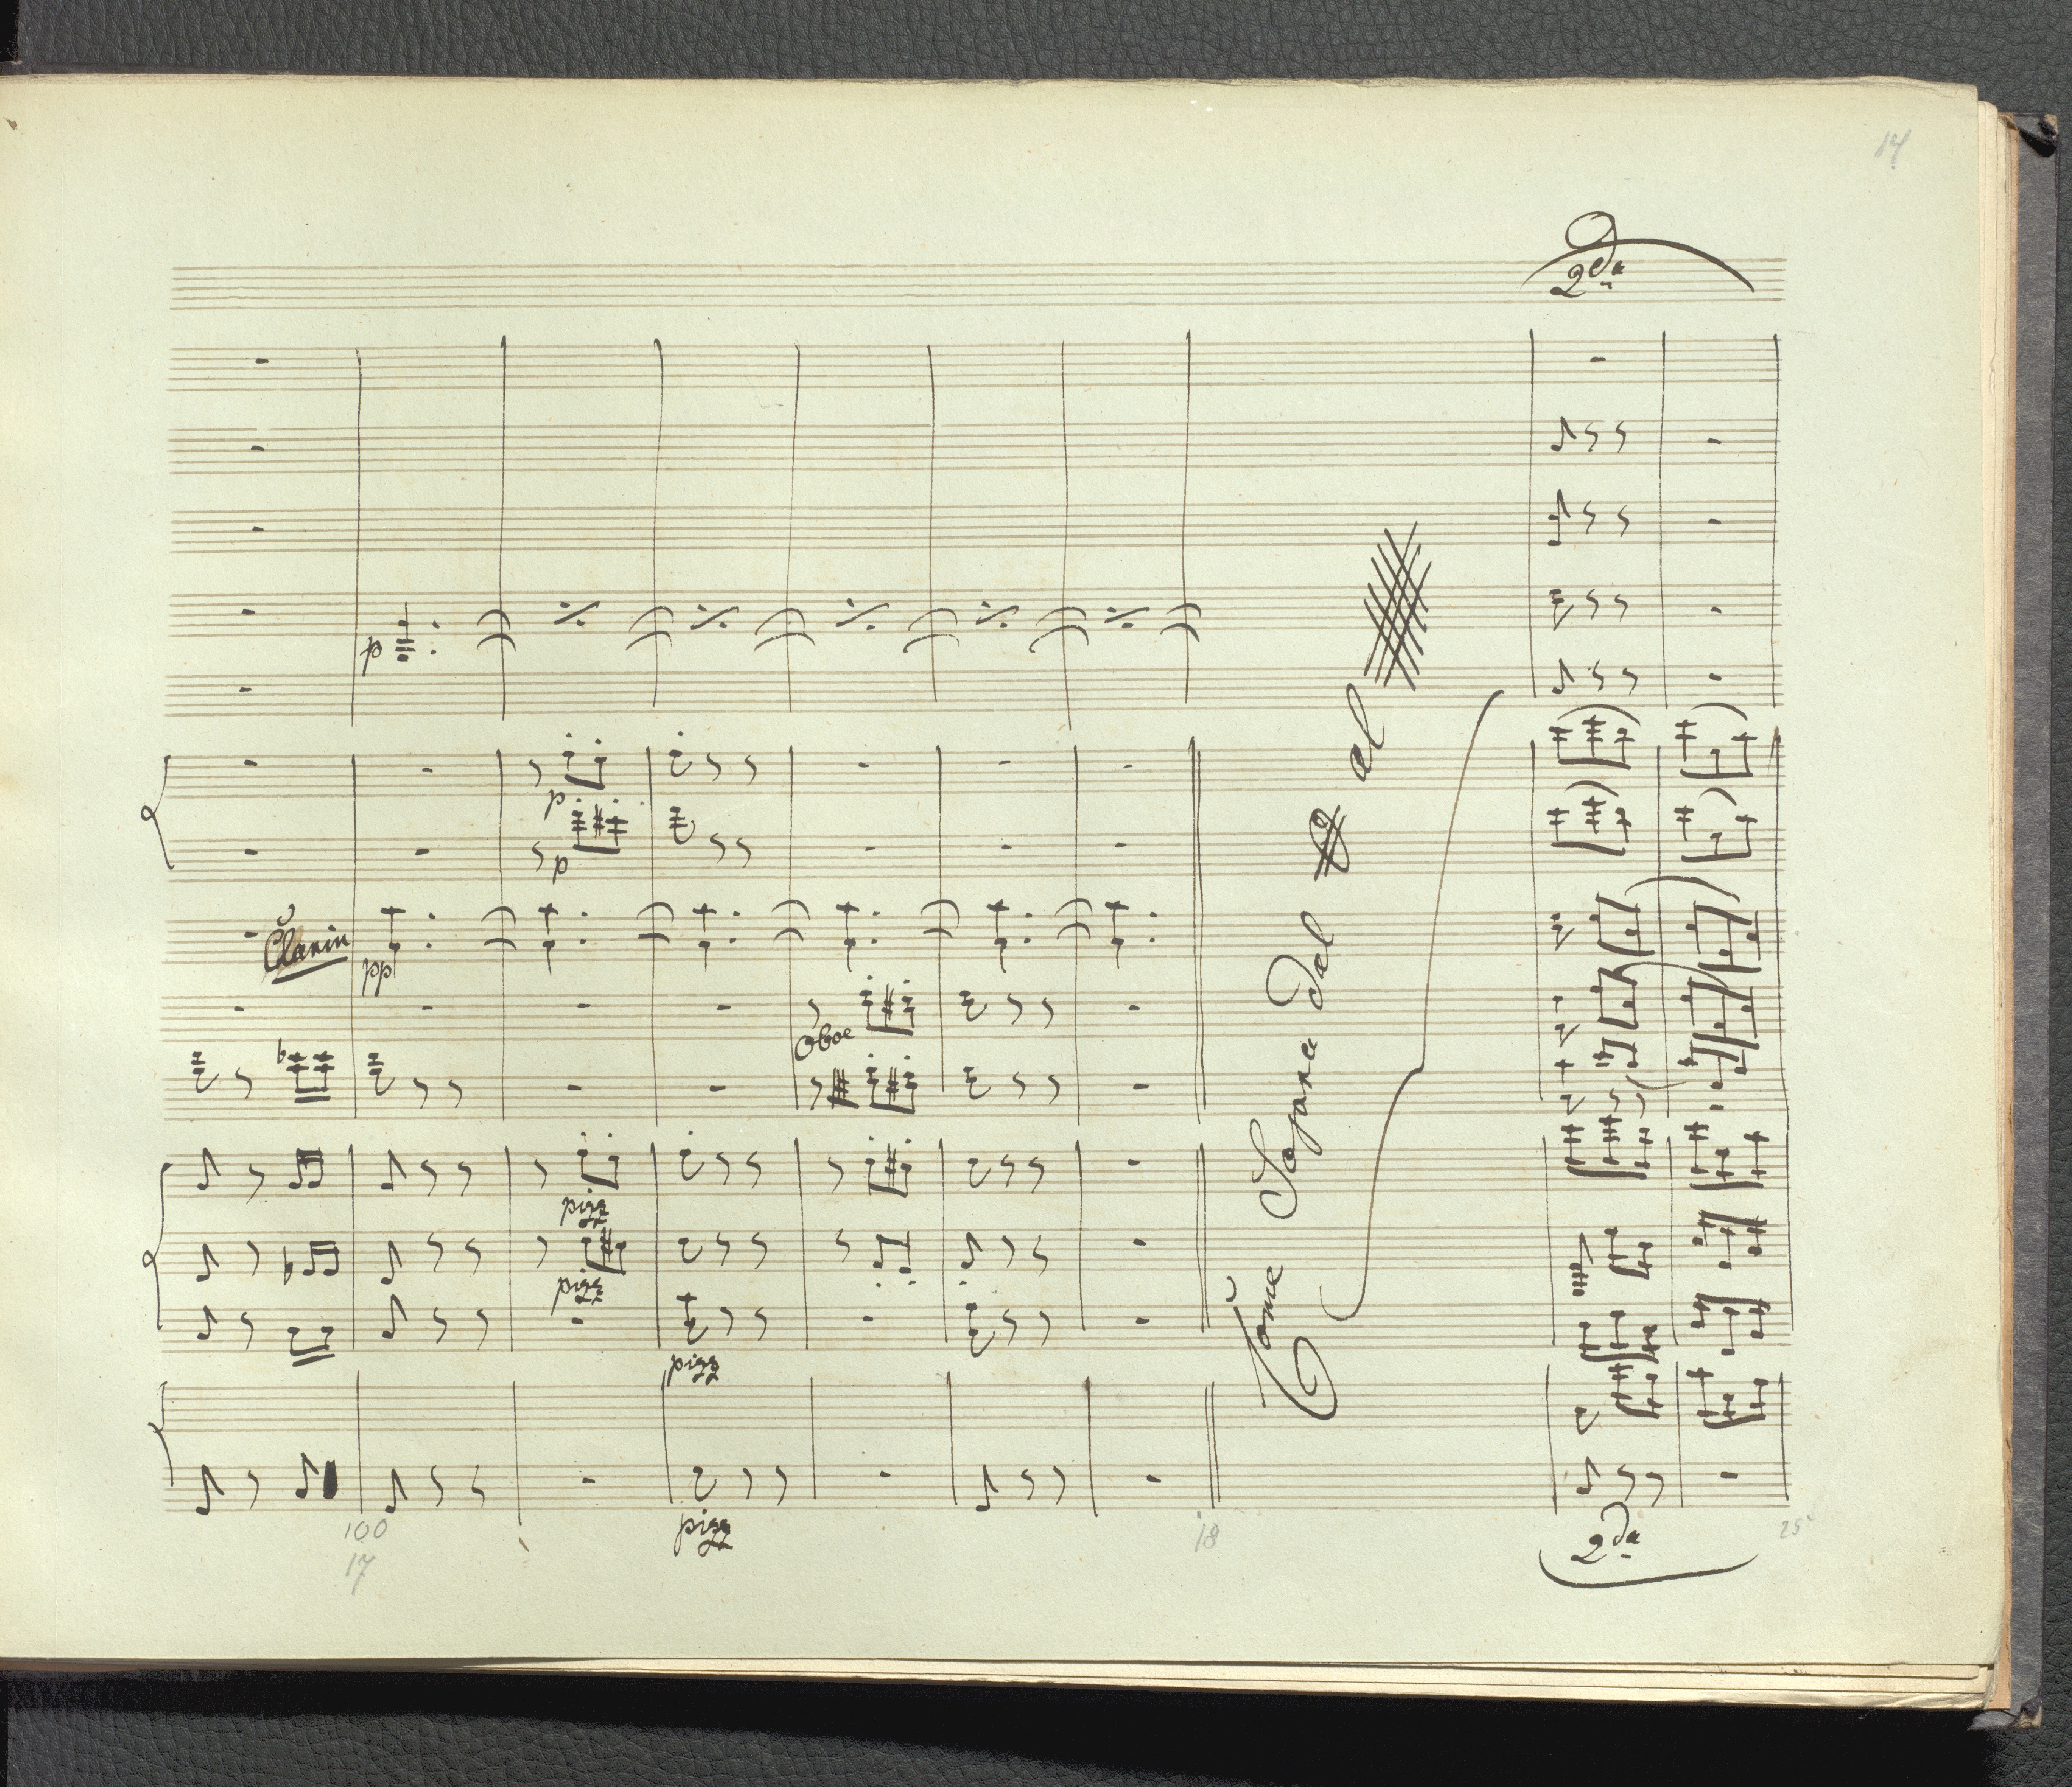 14
2da
p
p
p
Clarin
pp
Oboe
pizz
pizz
pizz
pizz
100
17
18
25
2da
Come Sopra dal
al